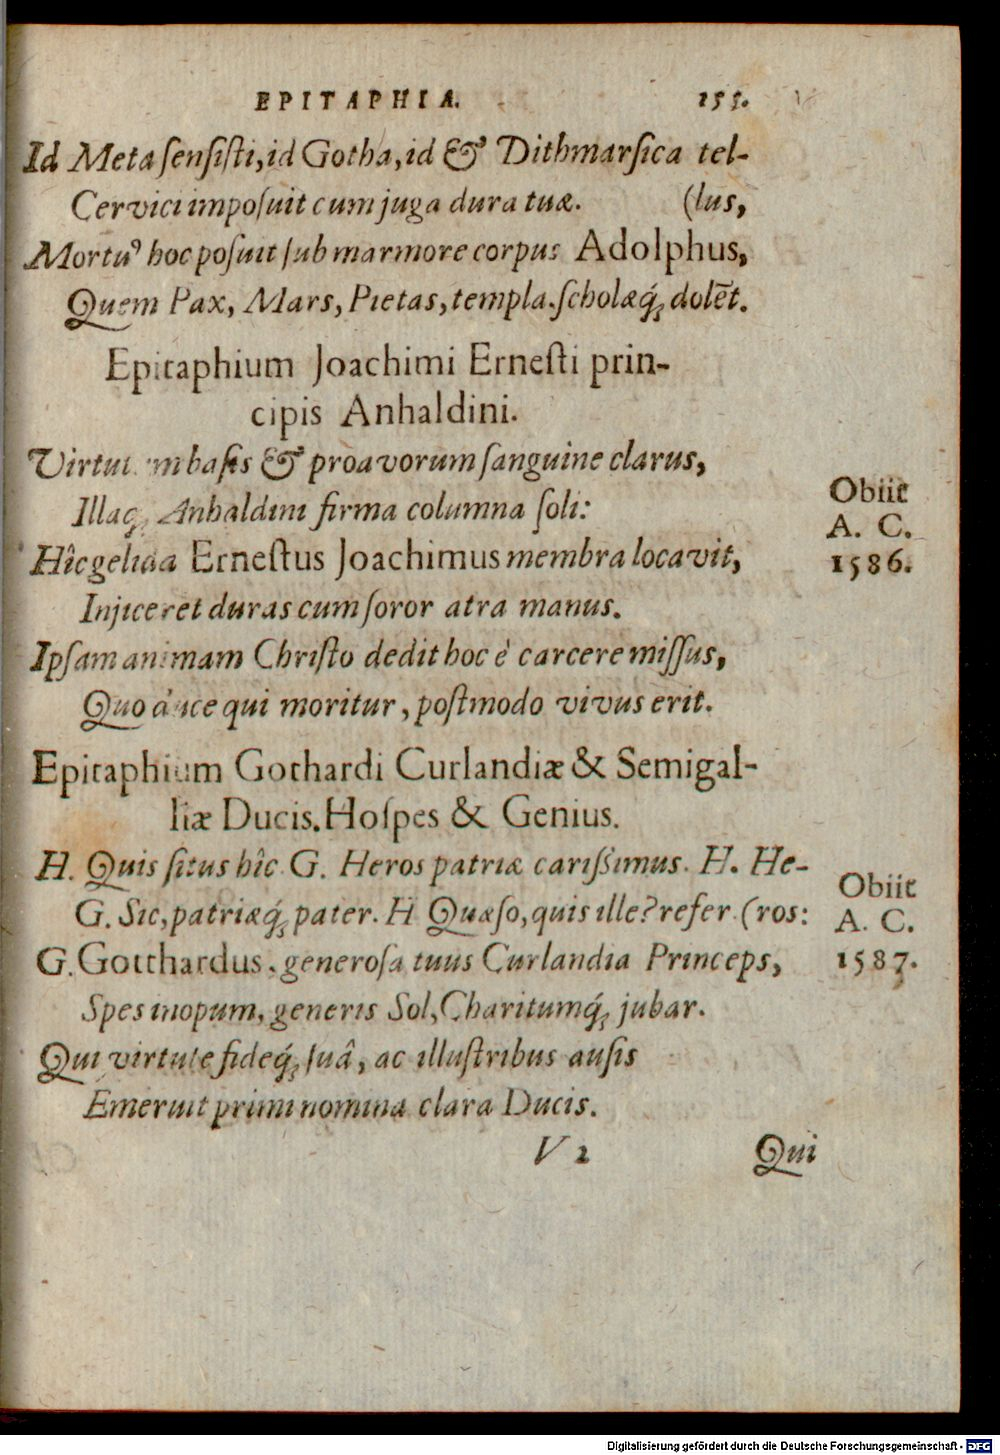 EPITAPHIA. 155.
Id Meta sensisti, id Gotha, id & Dithmarsica tel-
Cervici imposuit cum juga dura tuæ. (lus,
Mortuꝰ hoc posuit sub marmore corpus Adolphus,
Quem Pax, Mars, Pietas, templa scholæq́; dolēt.
Epitaphium Joachimi Ernesti prin-
cipis Anhaldini.
Virtutum basis & proavorum sanguine clarus,
Illaq; Anhaldini firma columna soli:
Hîc gelida Ernestus Joachimus membra locavit,
Injiceret duras cum soror atra manus.
Ipsam animam Christo dedit hoc è carcere missus,
Quo duce qui moritur, postmodo vivus erit.
Obiit
A. C.
1586.
Epitaphium Gothardi Curlandiæ & Semigal-
liæ Ducis. Hospes & Genius.
H. Quis situs hîc. G. Heros patriæ carissimus. H. He-
G. Sic, patriæq́; pater. H Quæso, quis ille? refer. (ros:
G. Gotthardus, generosa tuus Curlandia Princeps,
Spes inopum, generis Sol, Charitumq́; jubar.
Qui virtute fideq́; suâ, ac illustribus ausis
Emeruit primi nomina clara Ducis.
Obiit
A. C.
1587.
V 2 Qui
Digitalisierung gefördert durch die Deutsche Forschungsgemeinschaft - DFG